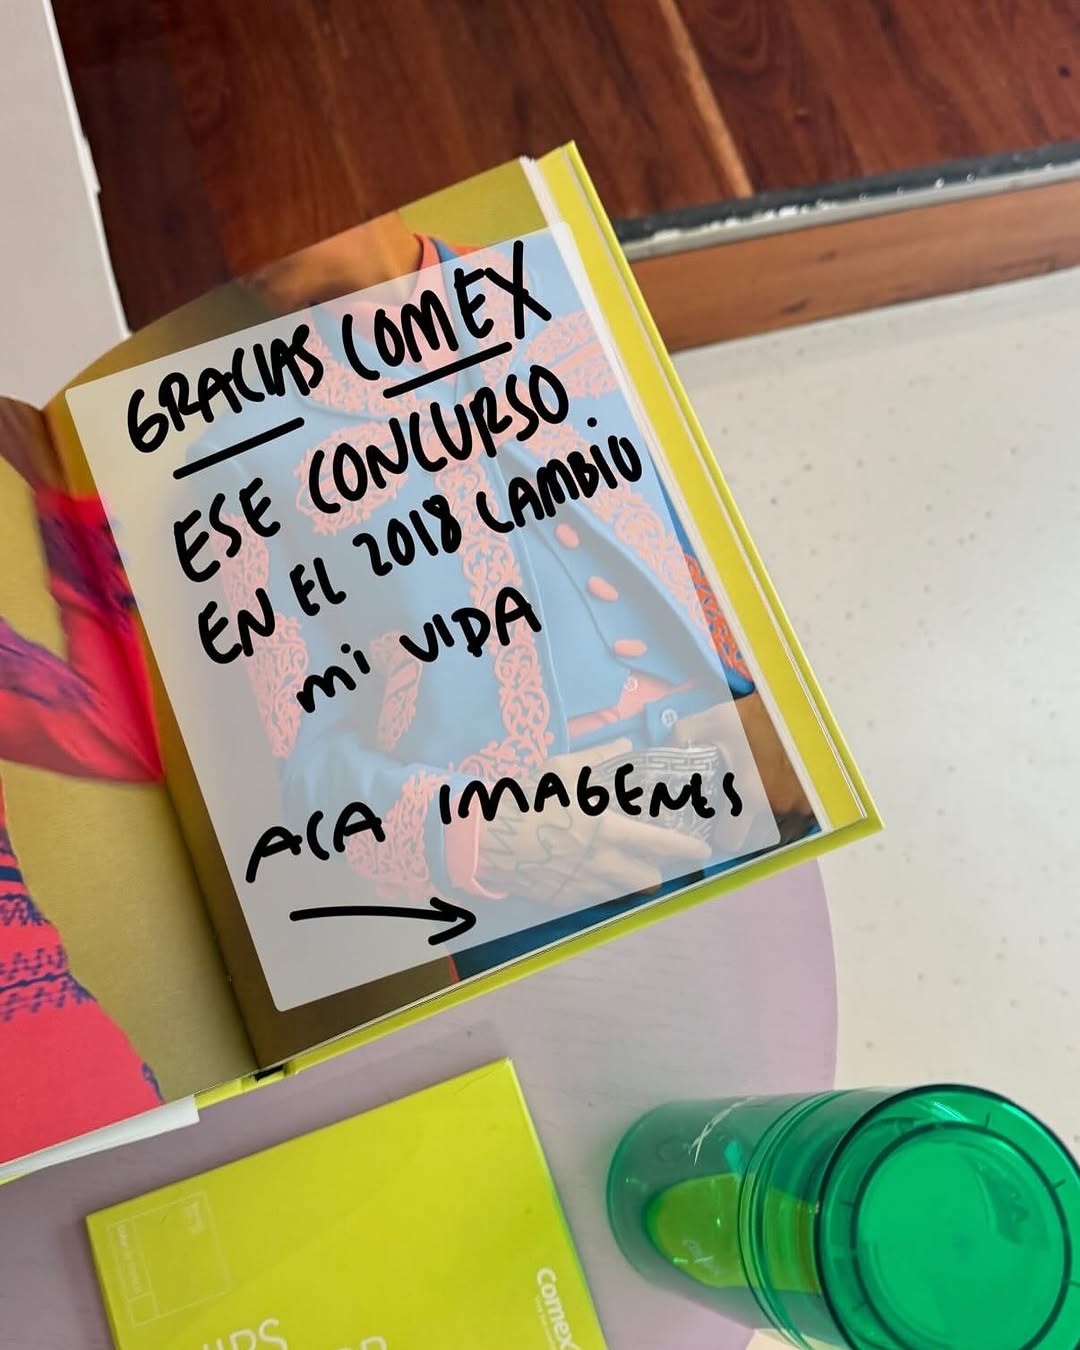 GRACIAS COMEX
ESE CONCURSO
EN EL 2018 CAMBIO
mi VIDA
ACA IMAGENES
Comex